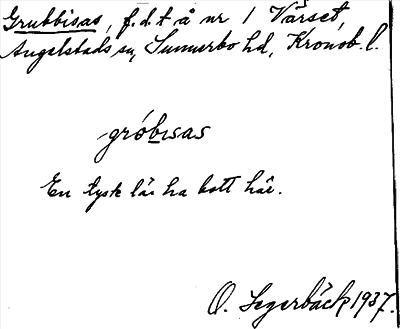 Grubbisas, f.d.t å nr 1 Värset,
Angelstads sn, Sunnerbo hd, Kronob. l.
gróbisas
En tysk lär ha bott här.
O. Segerbäck 1937.